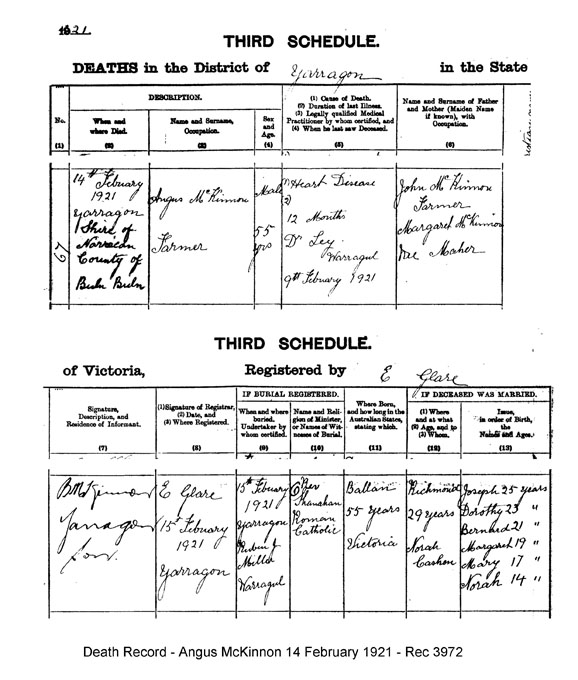 1921
THIRD SCHEDULE.
DEATHS in the District of Yarragon in the State
DESCRIPTION.
No.
(1)
When and
where Died.
(2)
Name and Surname,
Occupation.
(3)
Sex
and
Age.
(4)
(1) Cause of Death.
(2) Duration of last Illness.
(3) Legally qualified Medical
Practitioner by whom certified, and
(4) When he last saw Deceased.
(5)
Name and Surname of Father
and Mother (Maiden Name
if known), with
Occupation.
(6)
67
14th February
1921
Yarragon
Shire of
Narracan
County of
Buln Buln
Angus McKinnon
Farmer
Male
55
yrs
(1) Heart Disease
(2)
12 Months
Dr Ley
Warragul
9th February 1921
John McKinnon
Farmer
Margaret McKinnon
nee Maher
THIRD SCHEDULE.
of Victoria, Registered by E Glare
Signature,
Description, and
Residence of Informant.
(7)
(1) Signature of Registrar,
(2) Date, and
(3) Where Registered.
(8)
IF BURIAL REGISTERED.
When and where
buried.
Undertaker by
whom certified.
(9)
Name and Reli-
gion of Minister,
or Names of Wit-
nesses of Burial.
(10)
Where Born,
and how long in the
Australian States,
stating which.
(11)
IF DECEASED WAS MARRIED.
(1) Where
and at what
(2) Age, and to
(3) Whom.
(12)
Issue,
in order of Birth,
the
Names and Ages.
(13)
B McKinnon
Yarragon
Son.
E Glare
15th February
1921
Yarragon
15th February
1921
Yarragon
Miller
Warragul
Shanahan
Roman
Catholic
Ballan
55 years
Victoria
Richmond
29 years
Norah
Cashen
Joseph 25 years
Dorothy 23 "
Bernard 21 "
Margaret 19 "
Mary 17 "
Norah 14 "
Death Record - Angus McKinnon 14 February 1921 - Rec 3972